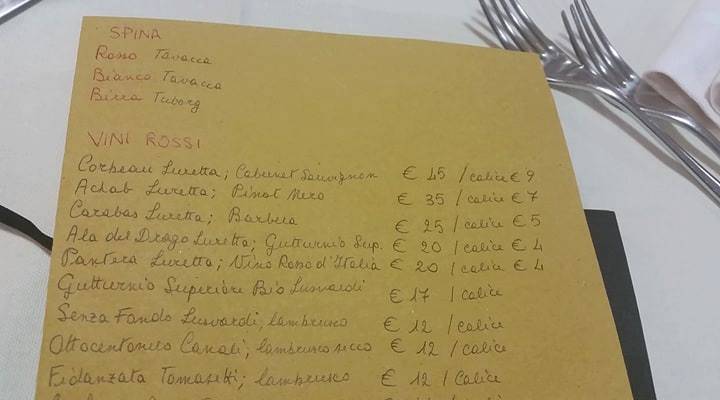 SPINA
Rosso Tavacca
Bianco Tavacca
Birra Tuborg
VINI ROSSI
Corbeau Luretta; Cabernet Sauvignon € 45 / calice € 9
Achab Luretta; Pinot Nero € 35 / calice € 7
Carabas Luretta; Barbera € 25 / calice € 5
Ala del Drago Luretta; Gutturnio Sup. € 20 / calice € 4
Pantera Luretta; Vino Rosso d'Italia € 20 / calice € 4
Gutturnio Superiore Bio Lusvardi € 17 / calice
Senza Fondo Lusvardi; lambrusco € 12 / calice
Ottocentonero Canali; lambrusco secco € 12 / calice
Fidanzata Tomasetti; lambrusco € 12 / calice